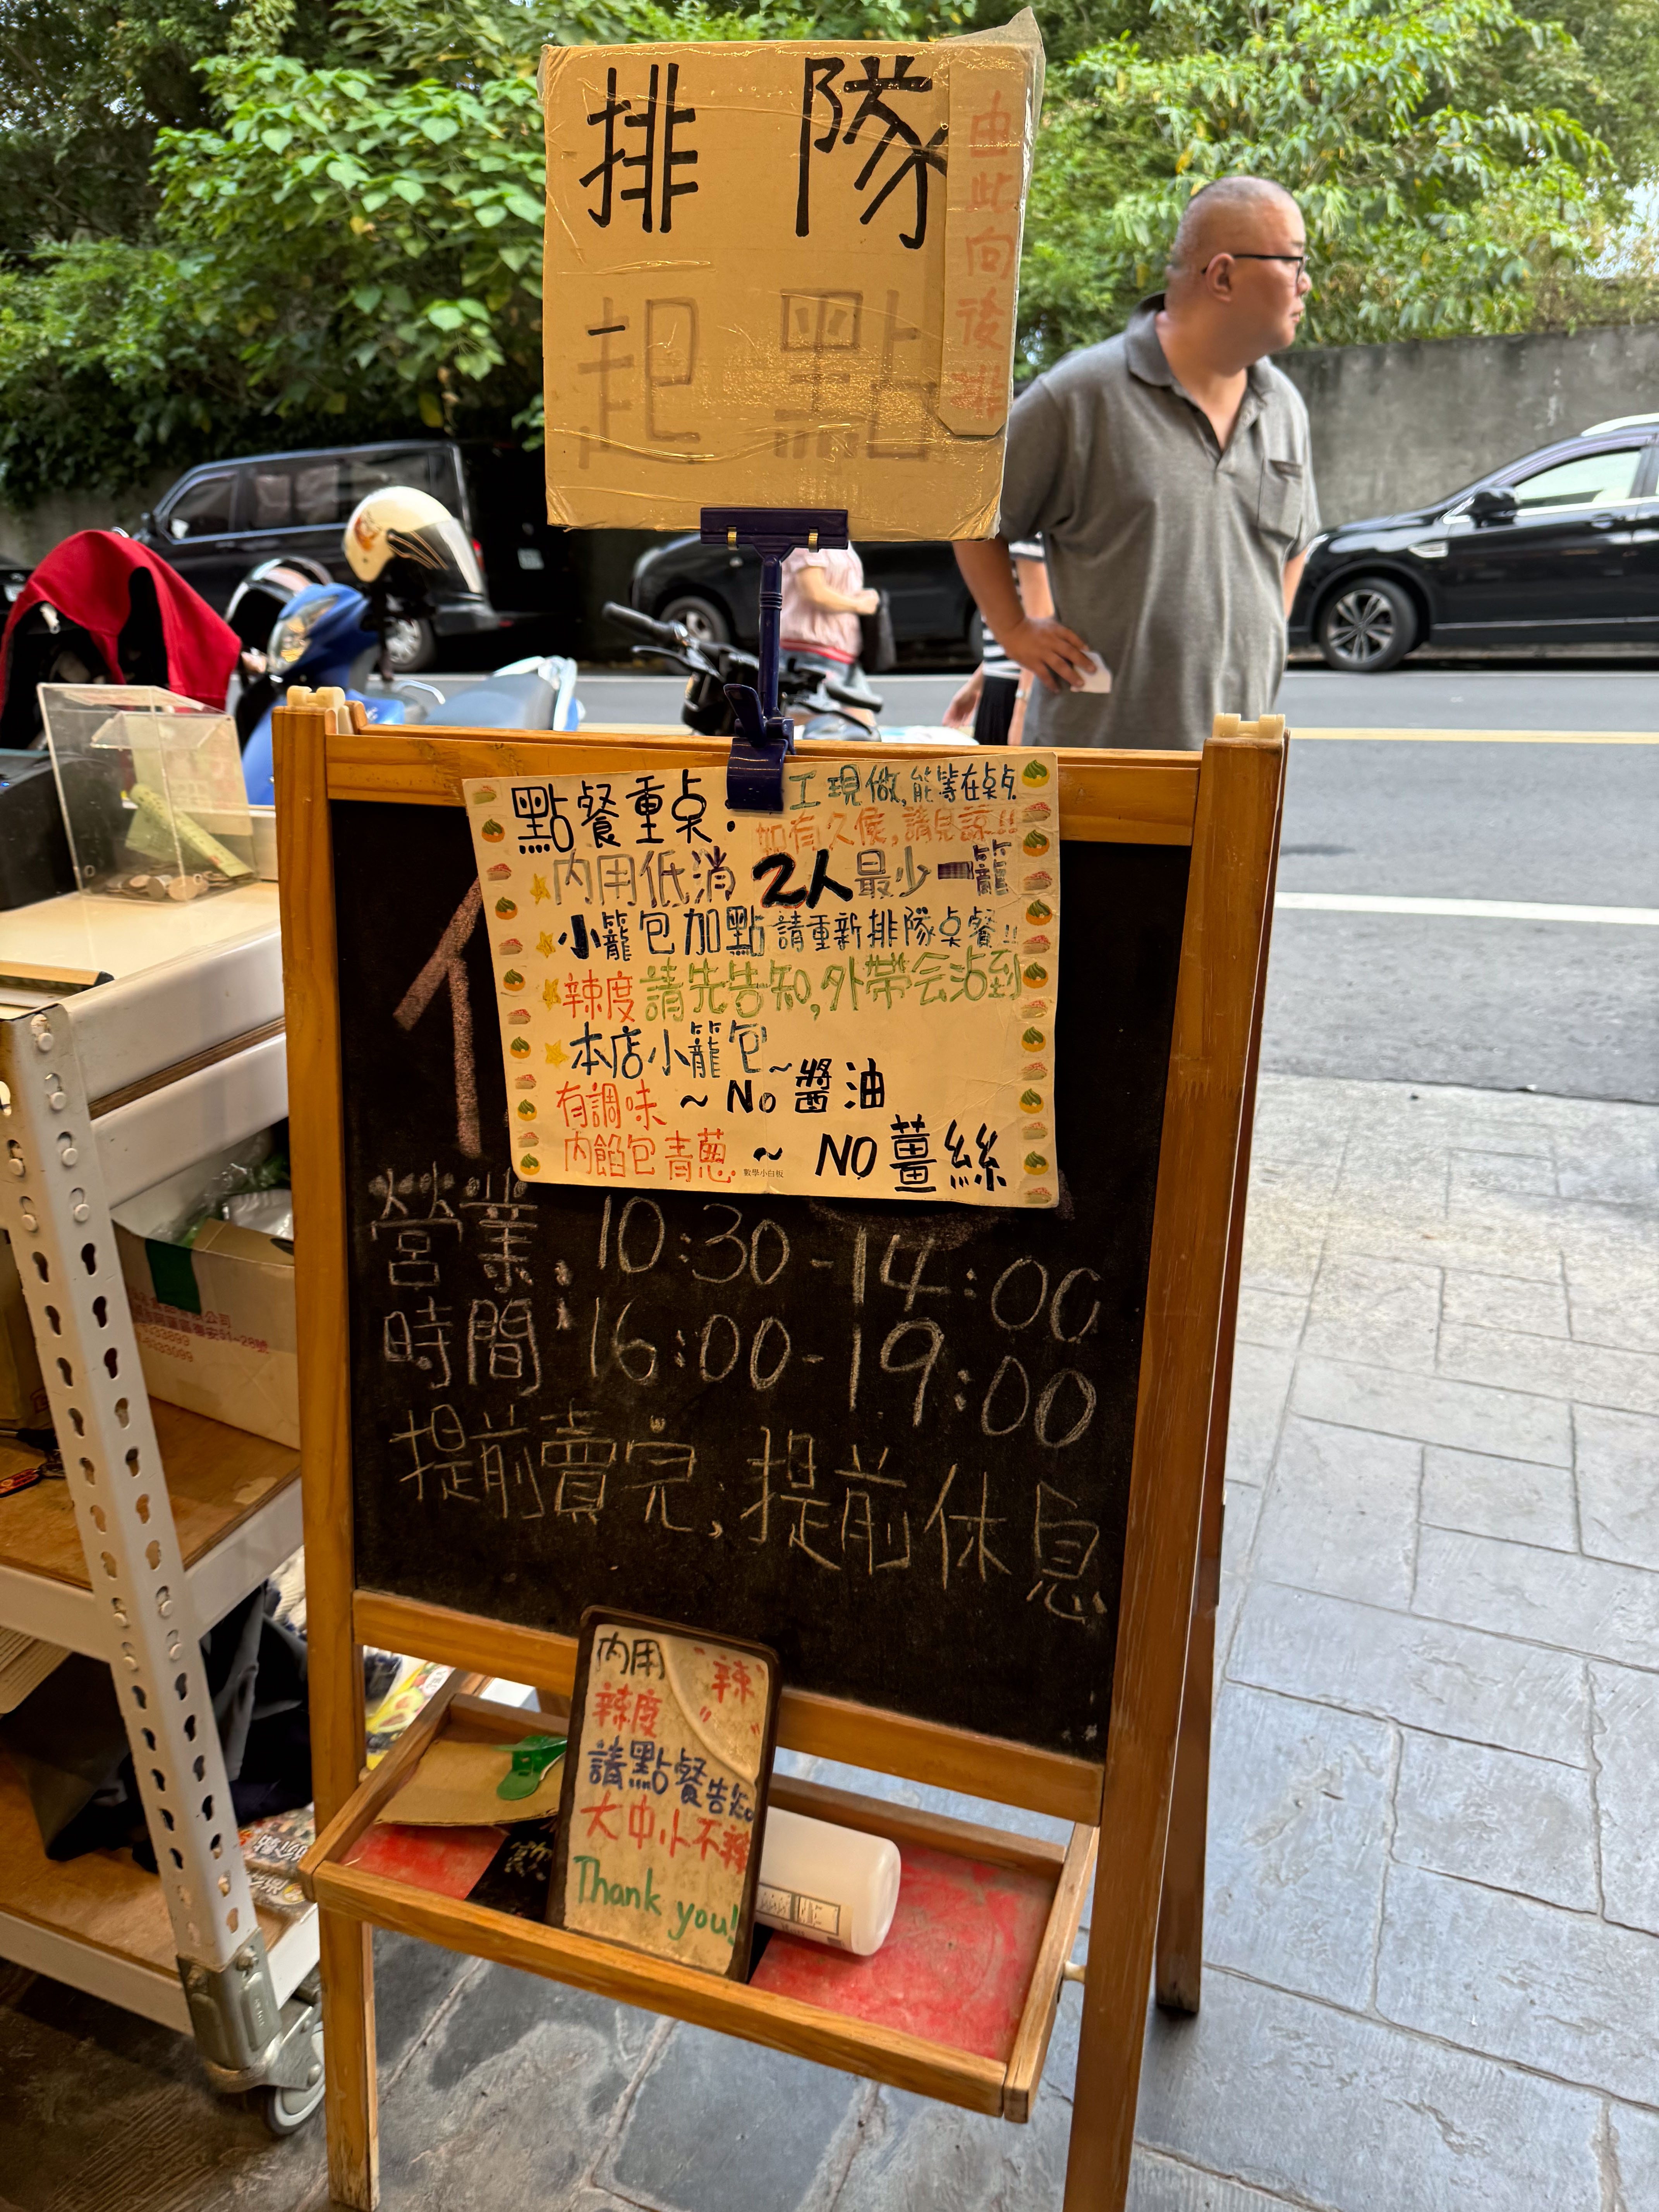 排隊
起點
由此向後排
點餐重點:
工現做,能等在點
如有久候,請見諒!!
內用低消 2人最少一籠
小籠包加點請重新排隊點餐!!
辣度請先告知,外帶会沾到
本店小籠包~
有調味~No醬油
內餡包青蔥~NO薑絲
數學小白板
營業 10:30-14:00
時間 16:00-19:00
提前賣完,提前休息
內用"辣"
辣度
請點餐告知
大中小不辣
Thank you!